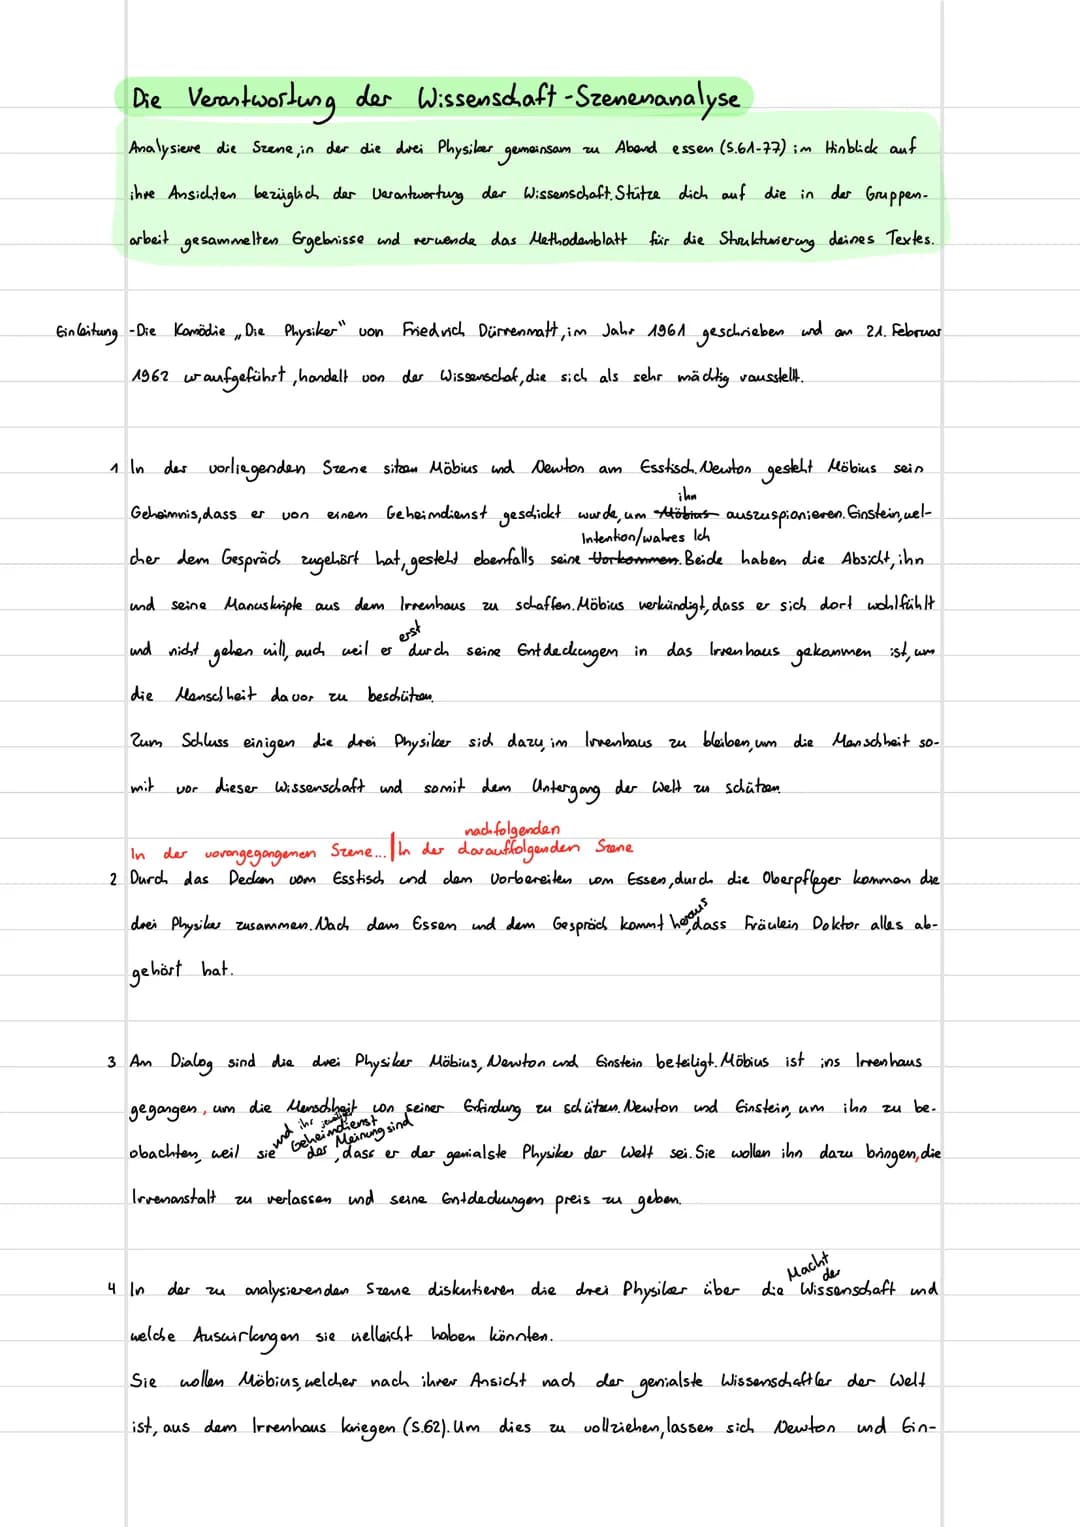 Die Verantwortung der Wissenschaft - Szenenanalyse
Analysiere die Szene, in der die drei Physiker gemeinsam zu Abend essen (S.61-77) im Hinblick auf
ihre Ansichten bezüglich der Verantwortung der Wissenschaft. Stütze dich auf die in der Gruppen-
arbeit gesammelten Ergebnisse und verwende das Methodenblatt für die Strukturierung deines Textes.
Einleitung - Die Komödie „Die Physiker" von Friedrich Dürrenmatt, im Jahr 1961 geschrieben und am 21. Februar
1962 uraufgeführt, handelt von der Wissenschaf, die sich als sehr mächtig rausstellt.
1 In der vorliegenden Szene sitzen Möbius und Newton am Esstisch. Newton gesteht Möbius sein
ihn
Geheimnis, dass er von einem Geheimdienst geschickt wurde, um Möbius auszuspionieren. Einstein, wel-
Intention/wahres Ich
cher dem Gespräch zugehört hat, gesteht ebenfalls seine Vorkommen. Beide haben die Absicht, ihn
und seine Manuskripte aus dem Irrenhaus zu schaffen. Möbius verkündigt, dass er sich dort wohlfühlt
erst
und nicht gehen will, auch weil er durch seine Entdeckungen in das Irrenhaus gekommen ist, um
die Menschheit davor zu beschützen.
Zum Schluss einigen die drei Physiker sich dazu, im Irrenhaus zu bleiben, um die Menschheit so-
mit vor dieser Wissenschaft und somit dem Untergang der Welt zu schützen.
nachfolgenden
In der vorangegangenen Szene... | In der darauffolgenden Szene
2 Durch das Decken vom Esstisch und dem Vorbereiten vom Essen, durch die Oberpfleger kommen die
heraus
drei Physiker zusammen. Nach dem Essen und dem Gespräch kommt, dass Fräulein Doktor alles ab-
gehört hat.
3 Am Dialog sind die drei Physiker Möbius, Newton und Einstein beteiligt. Möbius ist ins Irrenhaus
gegangen, um die Menschheit von seiner Erfindung zu schützen. Newton und Einstein, um ihn zu be-
und ihr jeweiliger
Geheimdienst
der Meinung sind
obachten, weil sie, dass er der genialste Physiker der Welt sei. Sie wollen ihn dazu bringen, die
Irrenanstalt zu verlassen und seine Entdeckungen preis zu geben.
Macht
der
4 In der zu analysierenden Szene diskutieren die drei Physiker über die Wissenschaft und
welche Auswirkungen sie vielleicht haben könnten.
Sie wollen Möbius, welcher nach ihrer Ansicht nach der genialste Wissenschaftler der Welt
ist, aus dem Irrenhaus kriegen (S.62). Um dies zu vollziehen, lassen sich Newton und Ein-